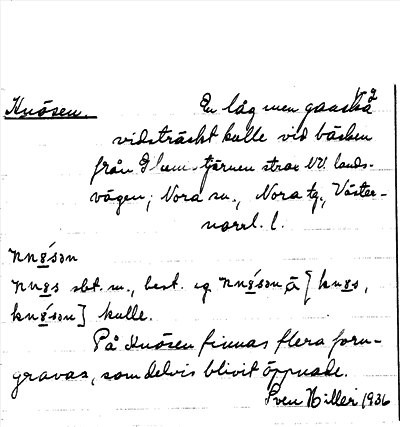 Knösen. En låg men ganska
vidsträckt kulle vid bäcken
från tjärnen strax NV lands-
vägen; Nora sn., Nora tg., Väster-
norrl. l.
nnsən
sbt. m., best. kulle.
På Knösen finnas flera forn-
gravar, som delvis blivit öppnade.
Sven Hiller 1936